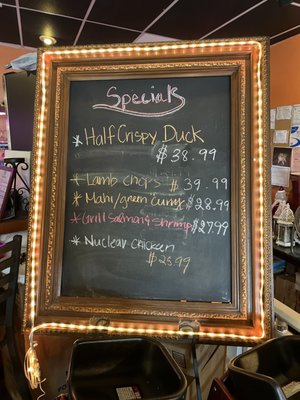 Specials
* Half Crispy Duck
$38.99
* Lamb chops $39.99
* Mahi/green curry $28.99
* Grill Salmon & Shrimp $2799
* Nuclear chicken
$25.99